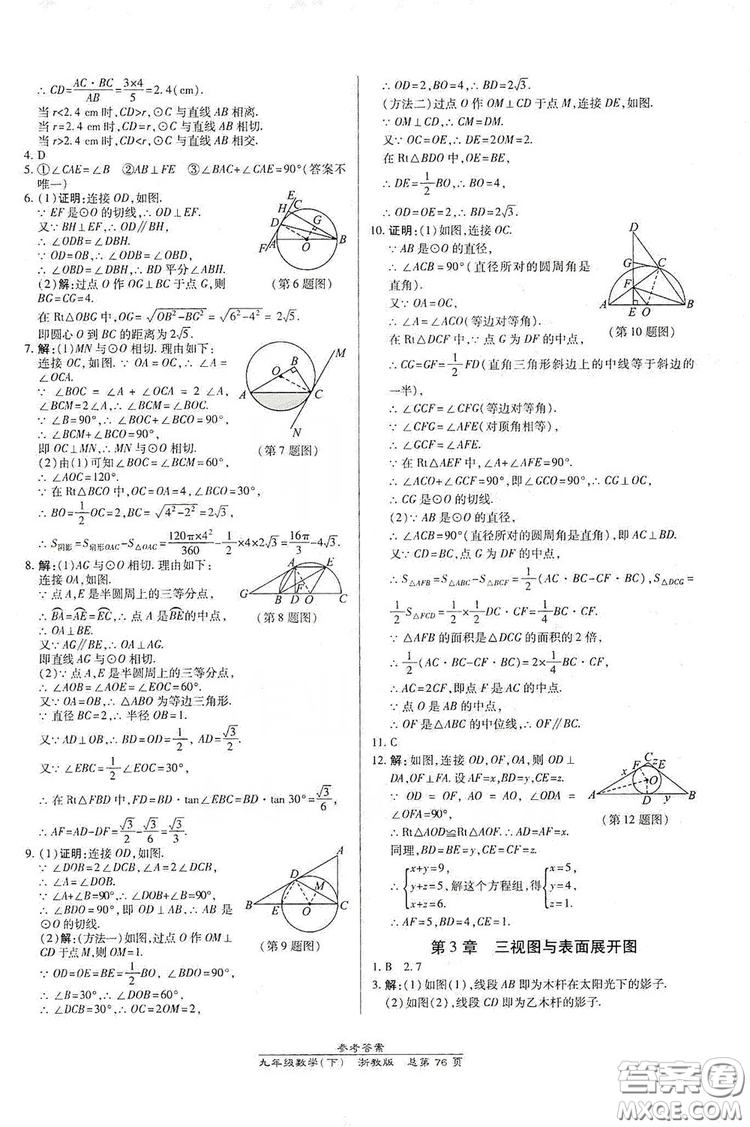 ∴ CD=AC·BC/AB=3×4/5=2.4(cm).
当 r<2.4 cm时,CD>r,⊙C 与直线 AB 相离.
当 r=2.4 cm时,CD=r,⊙C 与直线 AB 相切.
当 r>2.4 cm时,CD<r,⊙C 与直线 AB 相交.
4. D
5. ①∠CAE=∠B ②AB⊥FE ③∠BAC+∠CAE=90°(答案不
唯一)
6. (1)证明:连接 OD,如图.
∵ EF 是⊙O 的切线,∴ OD⊥EF.
又∵ BH⊥EF,∴ OD∥BH,
∴ ∠ODB=∠DBH.
∵ OD=OB,∴ ∠ODB=∠OBD,
∴ ∠OBD=∠DBH,∴ BD 平分∠ABH.
(2)解:过点 O 作 OG⊥BC 于点 G,则
BG=CG=4.
在 Rt△OBG 中,OG=√(OB²-BG²)=√(6²-4²)=2√5.
即圆心 O 到 BC 的距离为 2√5.
(第 6 题图)
7. 解:(1)MN 与⊙O 相切. 理由如下:
连接 OC,如图. ∵ OA=OC,∴ ∠A=
∠OCA.
∵ ∠BOC=∠A+∠OCA=2∠A,
∠BCM=2∠A,∴ ∠BCM=∠BOC.
∵ ∠B=90°,∴ ∠BOC+∠BCO=90°,
∴ ∠BCM+∠BCO=90°,
即 OC⊥MN,∴ MN 与⊙O 相切.
(2)由(1)可知∠BOC=∠BCM=60°,
∴ ∠AOC=120°.
∵ 在 Rt△BCO 中,OC=OA=4,∠BCO=30°,
∴ BO=1/2 OC=2,BC=√(4²-2²)=2√3.
∴ S阴影=S扇形OAC-S△OAC=120π×4²/360-1/2×4×2√3=16π/3-4√3.
(第 7 题图)
8. 解:(1)AG 与⊙O 相切. 理由如下:
连接 OA,如图.
∵ 点 A,E 是半圆周上的三等分点,
∴ BA=AE=EC,∴ 点 A 是BE的中点,
∴ OA⊥BE.
又∵ AG∥BE,∴ OA⊥AG.
即直线 AG 与⊙O 相切.
(2)∵ 点 A,E 是半圆周上的三等分点,
∴ ∠AOB=∠AOE=∠EOC=60°.
又∵ OA=OB,∴ △ABO 为等边三角形.
∵ 直径 BC=2,∴ 半径 OB=1.
又∵ AD⊥OB,∴ BD=OD=1/2,AD=√3/2.
∴ ∠EBC=1/2∠EOC=30°,
∴ 在 Rt△FBD 中,FD=BD·tan∠EBC=BD·tan 30°=√3/6,
∴ AF=AD-DF=√3/2-√3/6=√3/3.
(第 8 题图)
9. (1)证明:连接 OD,如图.
∵ ∠DOB=2∠DCB,∠A=2∠DCB,
∴ ∠A=∠DOB.
∵ ∠A+∠B=90°,∴ ∠DOB+∠B=90°,
∴ ∠BDO=90°,即 OD⊥AB,∴ AB 是
⊙O 的切线.
(2)解:(方法一)过点 O 作 OM⊥CD
于点 M,如图.
∵ OD=OE=BE=1/2 BO,∠BDO=90°,
∴ ∠B=30°,∴ ∠DOB=60°,
∴ ∠DCB=30°,∴ OC=2OM=2,
(第 9 题图)
∴ OD=2,BO=4,∴ BD=2√3.
(方法二)过点 O 作 OM⊥CD 于点 M,连接 DE,如图.
∵ OM⊥CD,∴ CM=DM.
又∵ OC=OE,∴ DE=2OM=2.
在 Rt△BDO 中,∵ OE=BE,
∴ DE=1/2 BO,∴ BO=4,
∴ OD=OE=2,∴ BD=2√3.
10. 证明:(1)如图,连接 OC.
∵ AB 是⊙O 的直径,
∴ ∠ACB=90°(直径所对的圆周角是
直角).
又∵ OA=OC,
∴ ∠A=∠ACO(等边对等角).
在 Rt△DCF 中,∵ 点 G 为 DF 的中点,
∴ CG=GF=1/2 FD(直角三角形斜边上的中线等于斜边的
一半),
∴ ∠GCF=∠CFG(等边对等角).
∵ ∠CFG=∠AFE(对顶角相等),
∴ ∠GCF=∠AFE.
∵ 在 Rt△AEF 中,∠A+∠AFE=90°,
∴ ∠ACO+∠GCF=90°,即∠GCO=90°,∴ CG⊥OC,
∴ CG 是⊙O 的切线.
(2)∵ AB 是⊙O 的直径,
∴ ∠ACB=90°(直径所对的圆周角是直角),即 AC⊥BD.
又∵ CD=CB,点 G 为 DF 的中点,
∴ S△AFB=S△ABC-S△BCF=1/2(AC·BC-CF·BC),S△DCG=
1/2 S△FCD=1/2×1/2 DC·CF=1/4 BC·CF.
∵ △AFB 的面积是△DCG 的面积的 2 倍,
∴ 1/2(AC·BC-CF·BC)=2×1/4 BC·CF,
∴ AC=2CF,即点 F 是 AC 的中点.
∵ 点 O 是 AB 的中点,
∴ OF 是△ABC 的中位线,∴ OF∥BC.
(第 10 题图)
11. C
12. 解:如图,连接 OD,OF,OA,则 OD⊥
DA,OF⊥FA. 设 AF=x,BD=y,CE=z.
∵ OD=OF,AO=AO,∠ODA=
∠OFA=90°,
∴ Rt△AOD≌Rt△AOF,∴ AD=AF=x.
同理,BD=BE=y,CE=CF=z.
∴ {x+y=9, y+z=5, x+z=6, 解这个方程组,得 {x=5, y=4, z=1.
∴ AF=5,BD=4,CE=1.
(第 12 题图)
第 3 章 三视图与表面展开图
1. B 2. 7
3. 解:(1)如图(1),线段 AB 即为木杆在太阳光下的影子.
(2)如图(2),线段 CD 即为乙木杆的影子.
参考答案
九年级数学(下) 浙教版 总第 76 页
答案圈
MXQE.COM